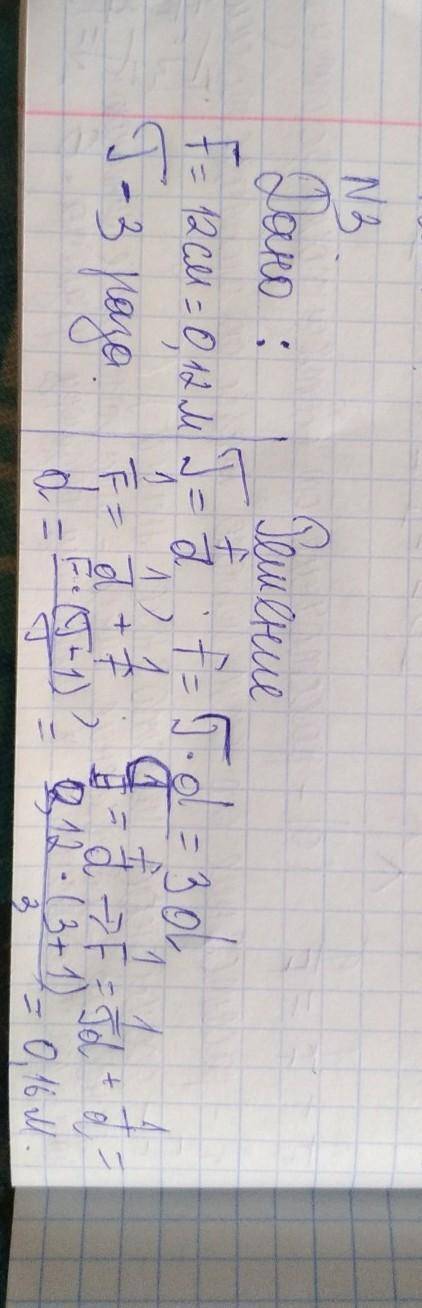 N3
Дано:
F = 12см = 0,12м
Г - 3 раза
Решение
Г = f/d; f = Г·d = 3d
1/F = 1/d + 1/f; Г = f/d → 1/F = 1/Гd + 1/d =
d = F·(Г+1)/Г = 0,12·(3+1)/3 = 0,16м.